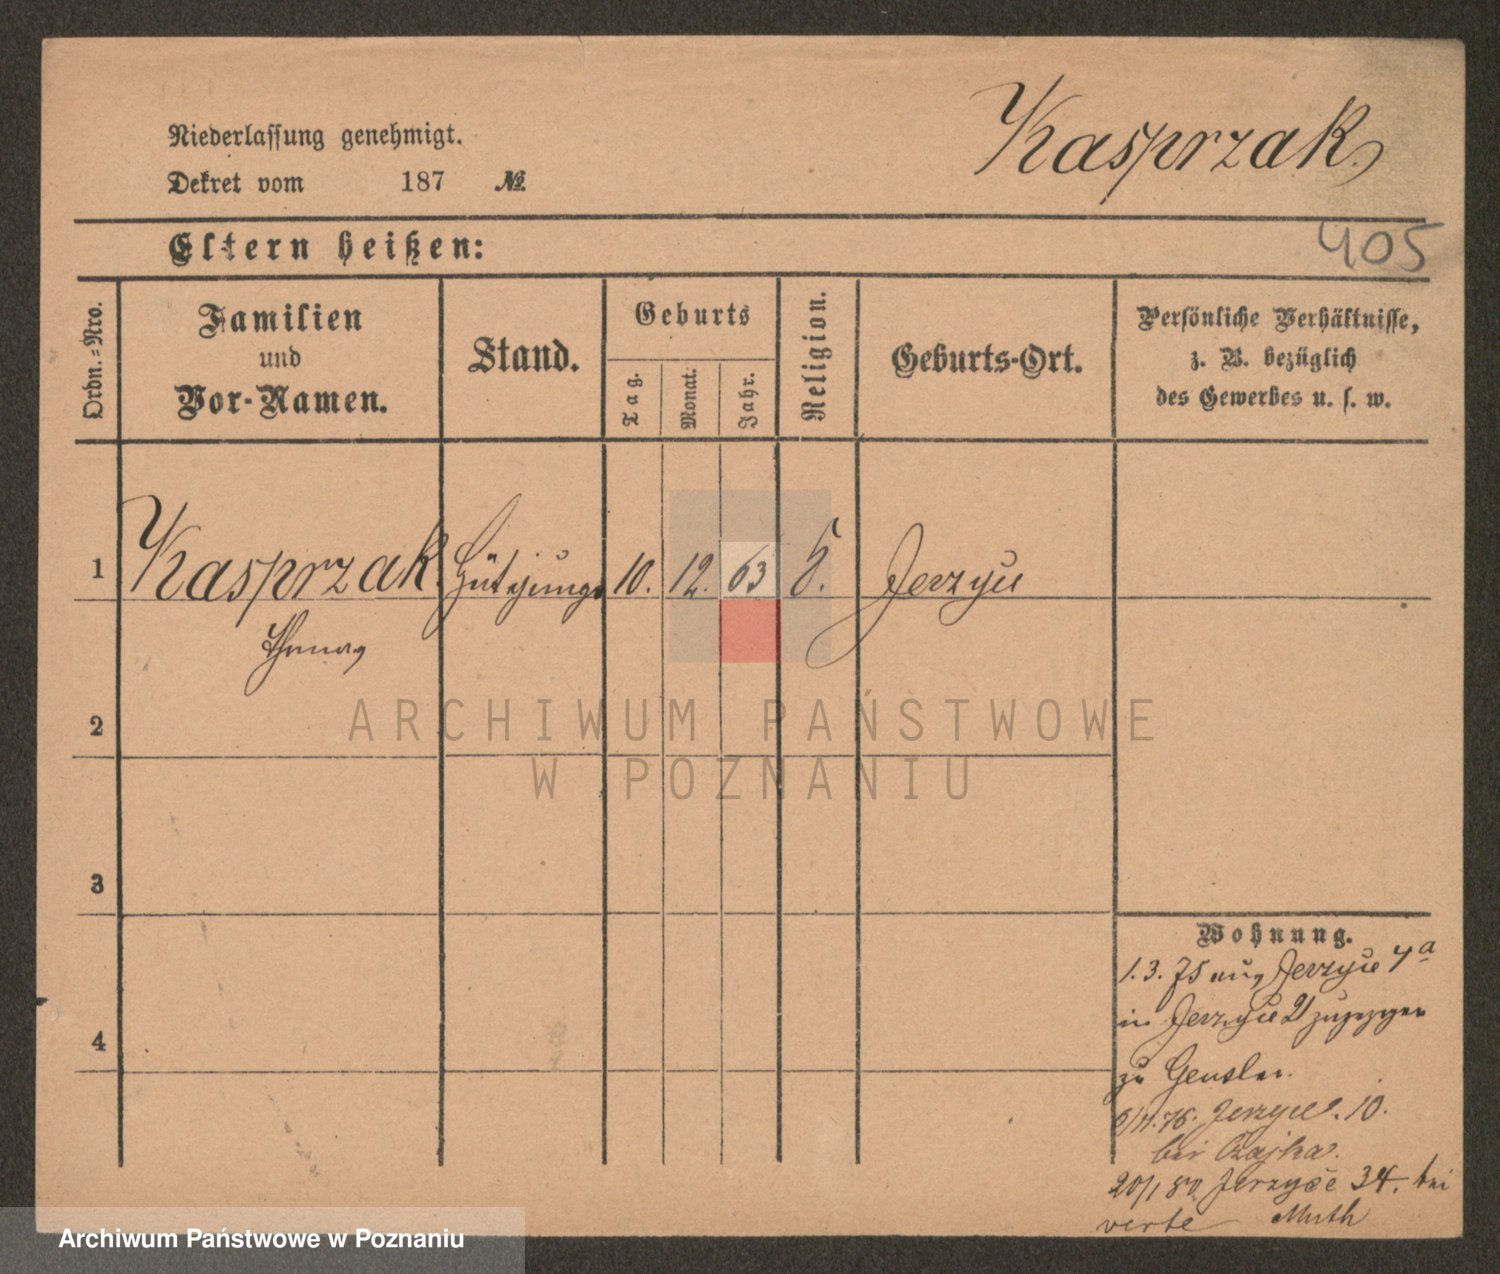 Kasprzak.
Niederlassung genehmigt.
Dekret vom 187 №
405
Eltern heißen:
Ordn.=Nro.
Familien
und
Vor-Namen.
Stand.
Geburts
Tag.
Monat.
Jahr.
Religion.
Geburts-Ort.
Persönliche Verhältnisse,
z. B. bezüglich
des Gewerbes u. s. w.
1 Kasprzak. Hütejunge 10. 12. 63 Jerzyce
Thomas
2
3
4
Wohnung.
1. 3. 75 aus Jerzyce 4a
in Jerzyce 21 zugezogen
zu Gensler.
76. Jerzyce. 10.
bei Czajka.
20/1 80 Jerzyce 34. bei
Muth
ARCHIWUM PAŃSTWOWE
W POZNANIU
Archiwum Państwowe w Poznaniu